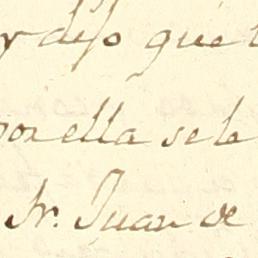 y dijo que
por ella se le
Sr. Juan de